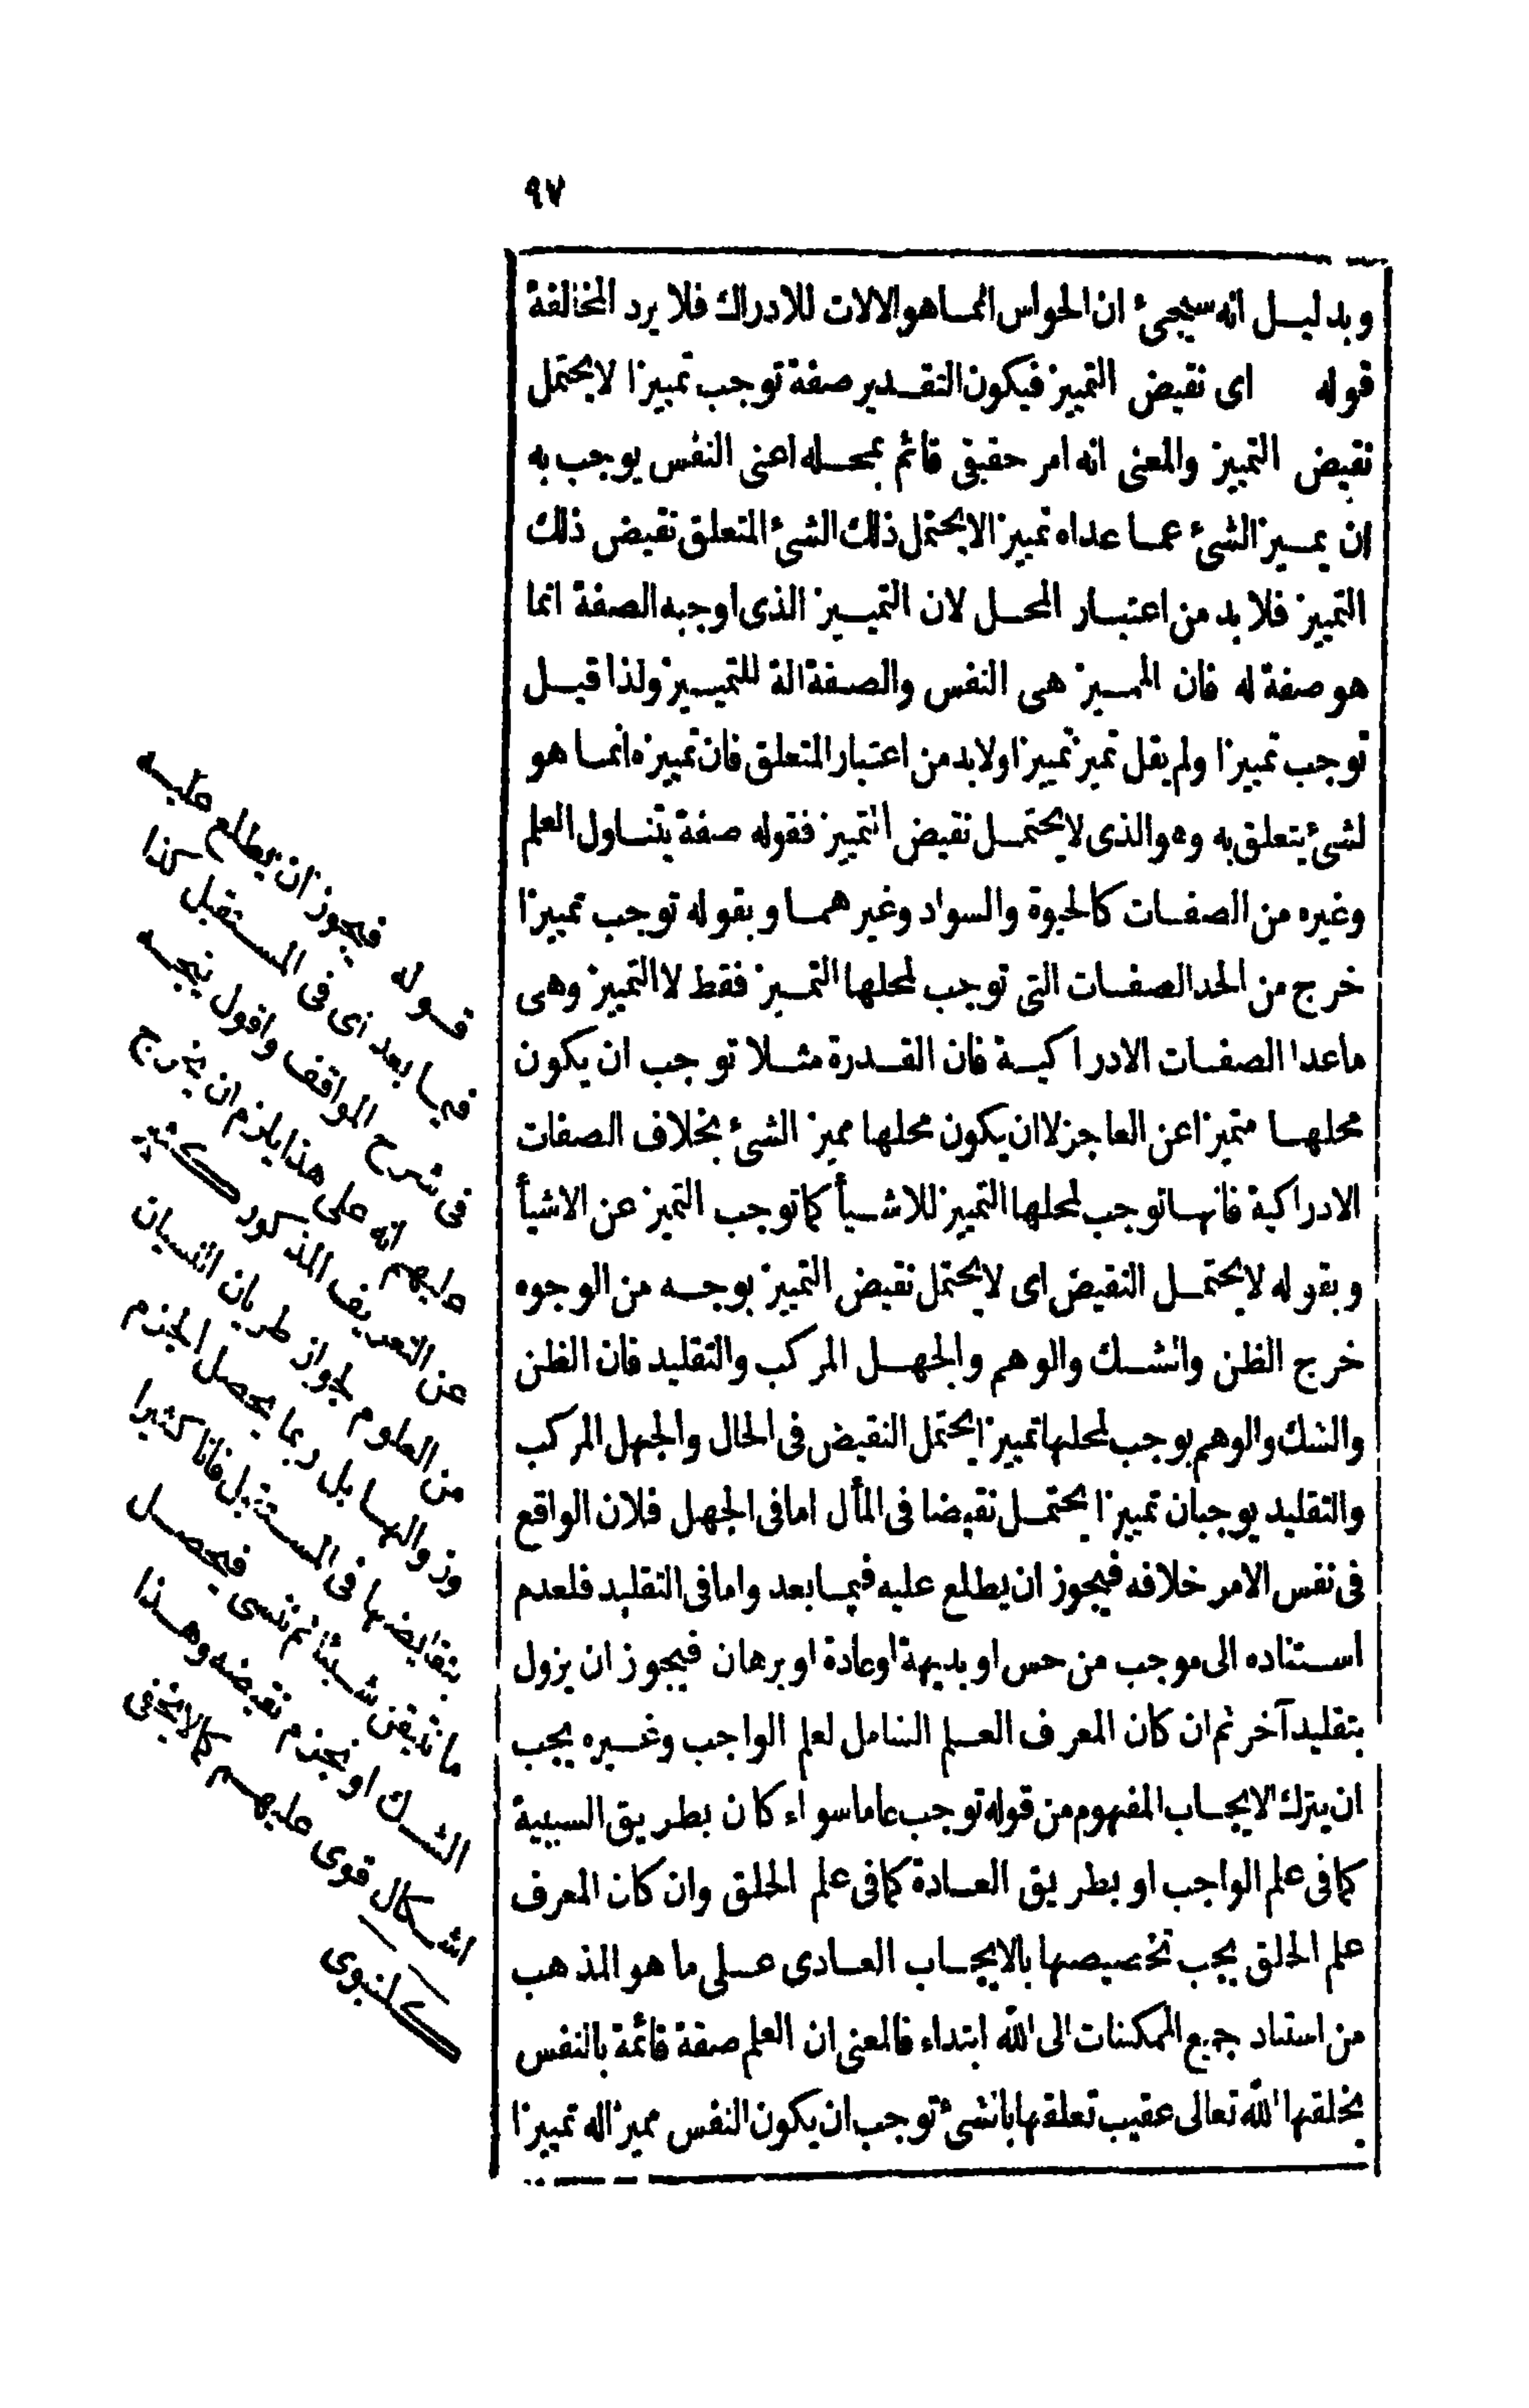 ٩٧
وبدليل انه سيجىء ان الحواس انما هو الالات للادراك فلا يرد المخالفة
قوله اى نقيض التمييز فيكون التقدير صفة توجب تمييزا لا يحتمل
نقيض التمييز والمعنى انه امر حقيقى قائم بمحله اعنى النفس يوجب به
ان يميز الشىء عما عداه تمييزا لا يحتمل ذلك الشىء المتعلق نقيض ذلك
التمييز فلا بد من اعتبار المحل لان التمييز الذى اوجبه الصفة انما
هو صفة له فان المميز هى النفس والصفة الة للتمييز ولذا قيل
توجب تمييزا ولم يقل تميز تمييزا ولا بد من اعتبار المتعلق فان تمييزه انما هو
لشىء يتعلق به وهو الذى لا يحتمل نقيض التمييز فقوله صفة يتناول العلم
وغيره من الصفات كالحيوة والسواد وغيرهما وبقوله توجب تمييزا
خرج من الحد الصفات التى توجب لمحلها التميز فقط لا التمييز وهى
ماعدا الصفات الادراكية فان القدرة مثلا توجب ان يكون
محلها متميزا عن العاجز لا ان يكون محلها مميز الشىء بخلاف الصفات
الادراكية فانها توجب لمحلها التمييز للاشيأ كما توجب التميز عن الاشيأ
وبقوله لا يحتمل النقيض اى لا يحتمل نقيض التمييز بوجه من الوجوه
خرج الظن والشك والوهم والجهل المركب والتقليد فان الظن
والشك والوهم يوجب لمحلها تمييزا يحتمل النقيض فى الحال والجهل المركب
والتقليد يوجبان تمييزا يحتمل نقيضا فى المأل اما فى الجهل فلان الواقع
فى نفس الامر خلافه فيجوز ان يطلع عليه فيما بعد واما فى التقليد فلعدم
استناده الى موجب من حس او بديهة او عادة او برهان فيجوز ان يزول
بتقليد آخر ثم ان كان المعرف العلم الشامل لعلم الواجب وغيره يجب
ان يترك الايجاب المفهوم من قوله توجب عاما سواء كان بطريق السببية
كما فى علم الواجب او بطريق العادة كما فى علم الخلق وان كان المعرف
علم الخلق يجب تخصيصها بالايجاب العادى على ما هو المذهب
من استناد جميع الممكنات الى الله ابتداء فالمعنى ان العلم صفة قائمة بالنفس
يخلقها الله تعالى عقيب تعلقها بالشىء توجب ان يكون النفس مميزا له تمييزا
قوله فيجوز ان يطلع عليه
فيما بعد اى فى المستقبل كذا
فى شرح المواقف واقول يتجه
عليهم انه على هذا يلزم ان يخرج
عن التعريف المذكور كثير
من العلوم لجواز طريان النسيان
وزوالها بل ربما يحصل الجزم
بنقايضها فى المستقبل فانا كثيرا
ما نتيقن شيئا ثم ننسى فيحصل
الشك او نجزم نقيضه وهذا
اشكال قوى عليهم كما لا يخفى
كلنبوى